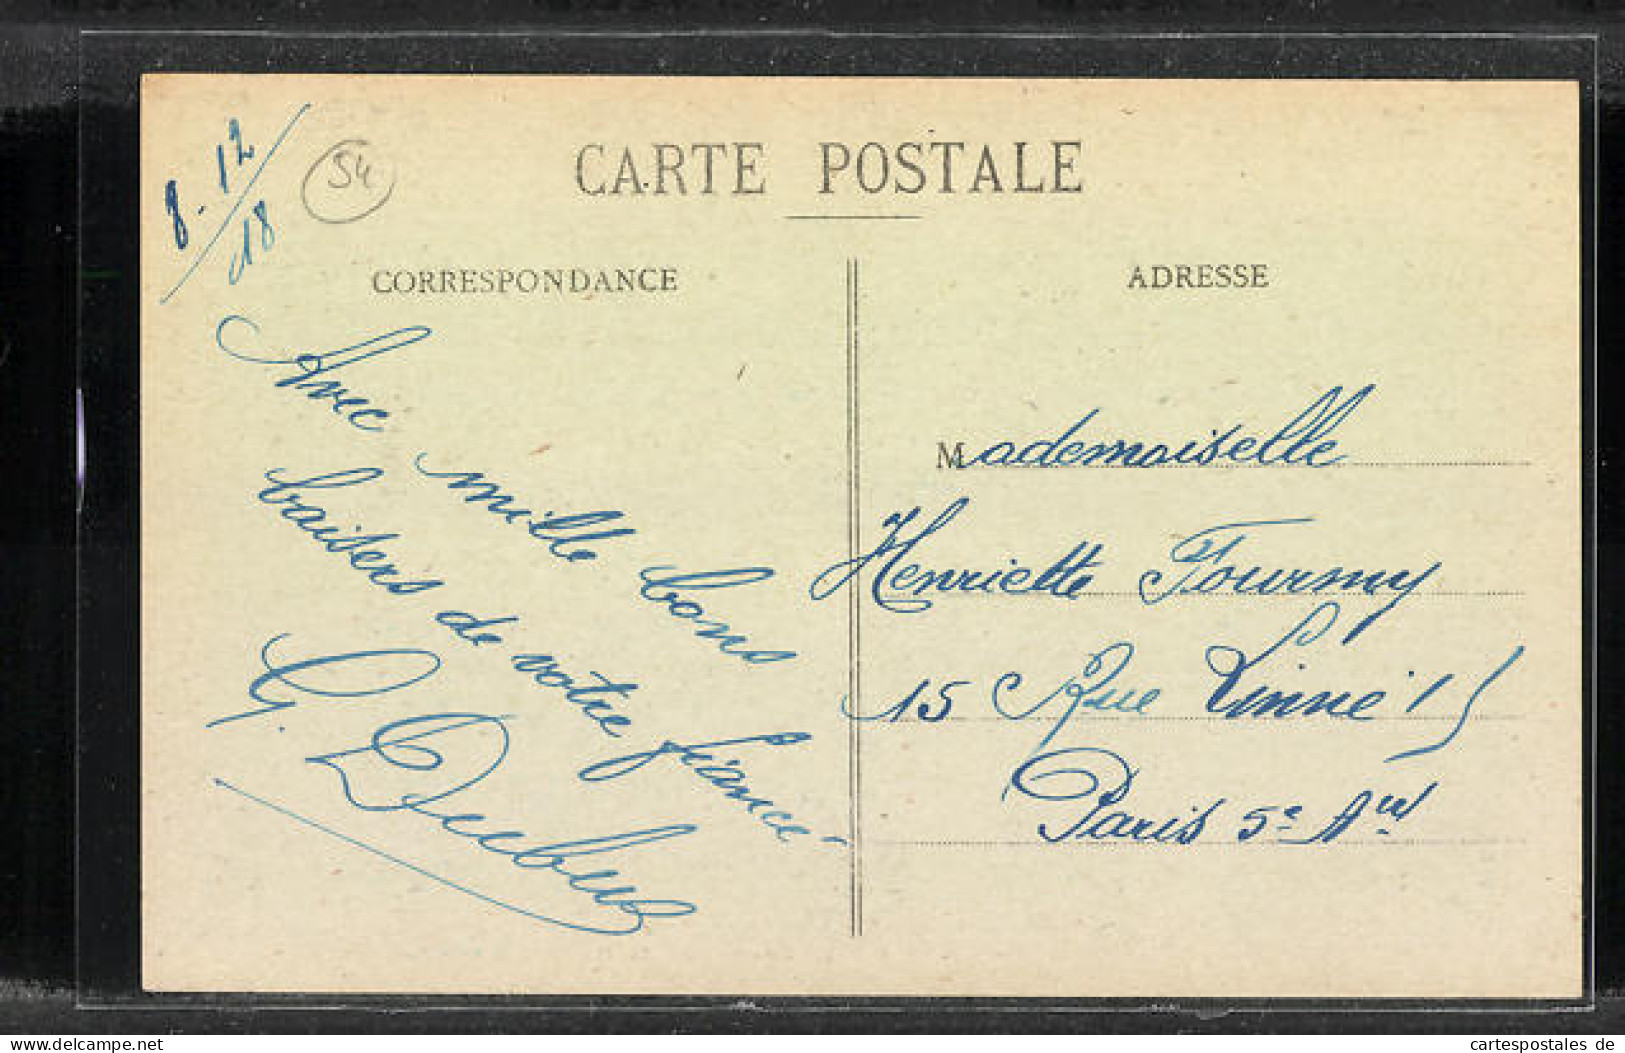 8-12/18
54
CARTE POSTALE
CORRESPONDANCE
Avec mille bons
baisers de votre fiancé-
G. Dubus
ADRESSE
Mademoiselle
Henriette Fourmy
15 Rue Linné 15
Paris 5e Art
www.delcampe.net
cartespostales de